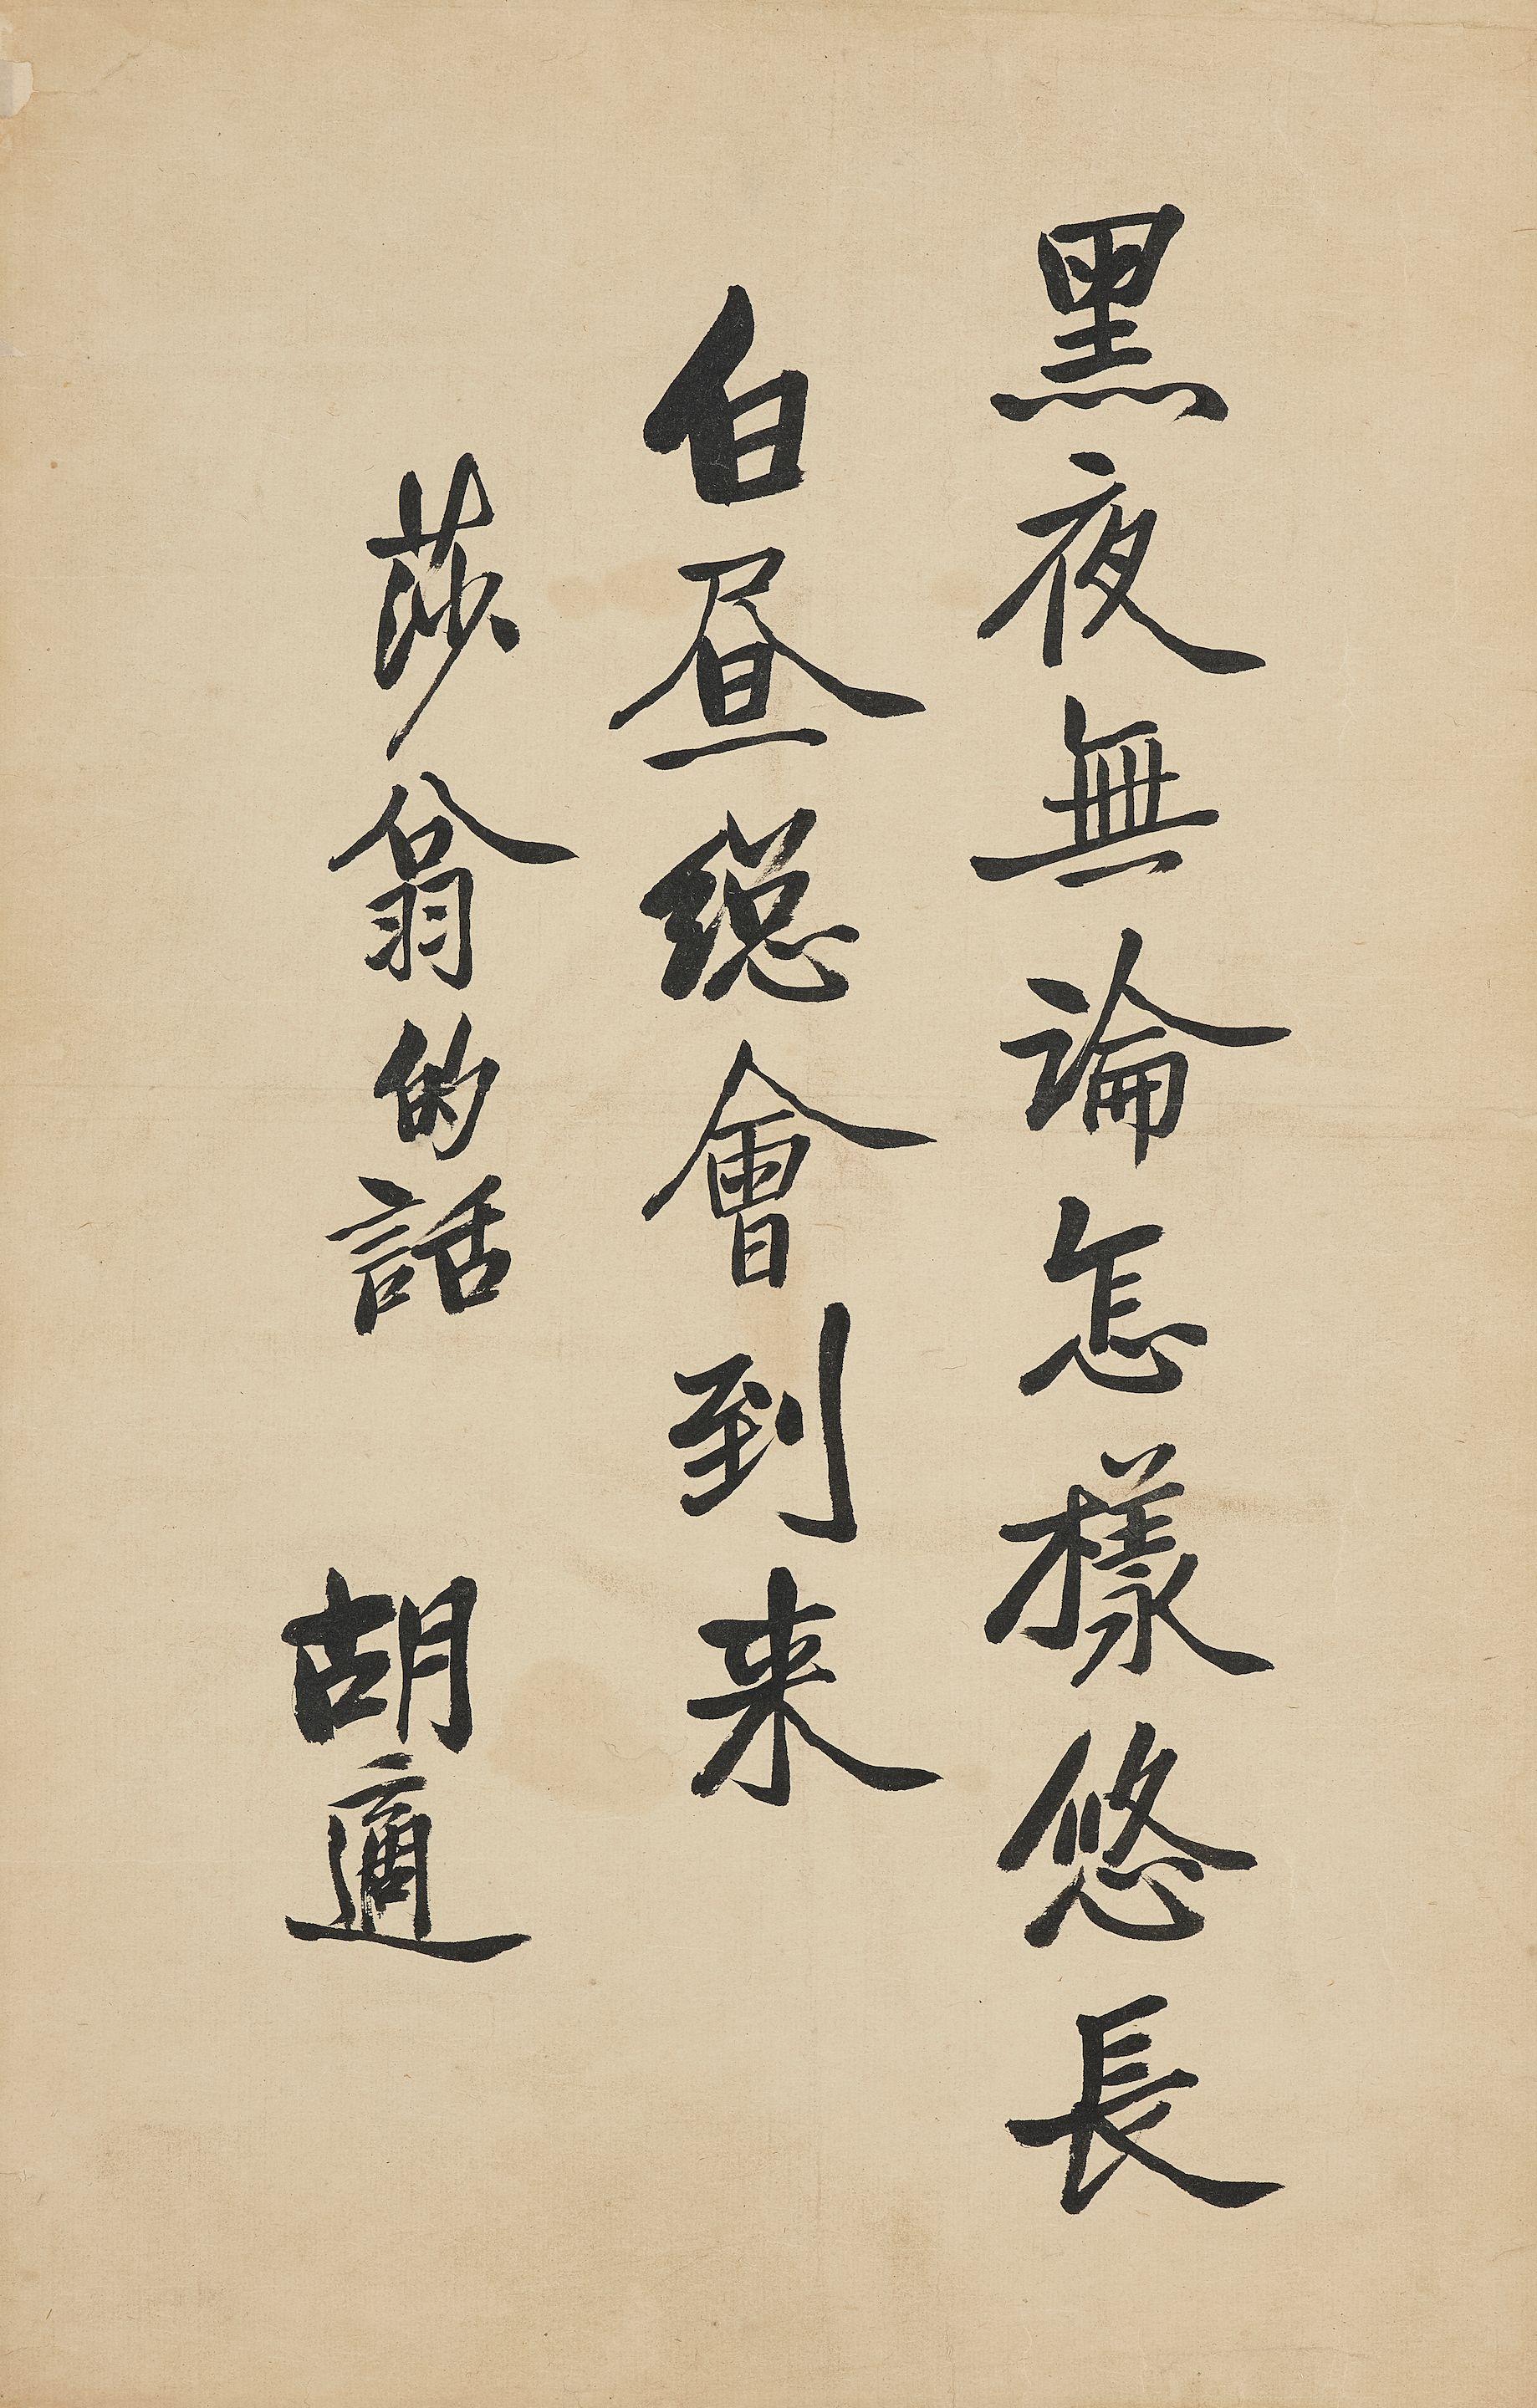 黑夜無論怎樣悠長
白昼總會到来
莎翁的話 胡適